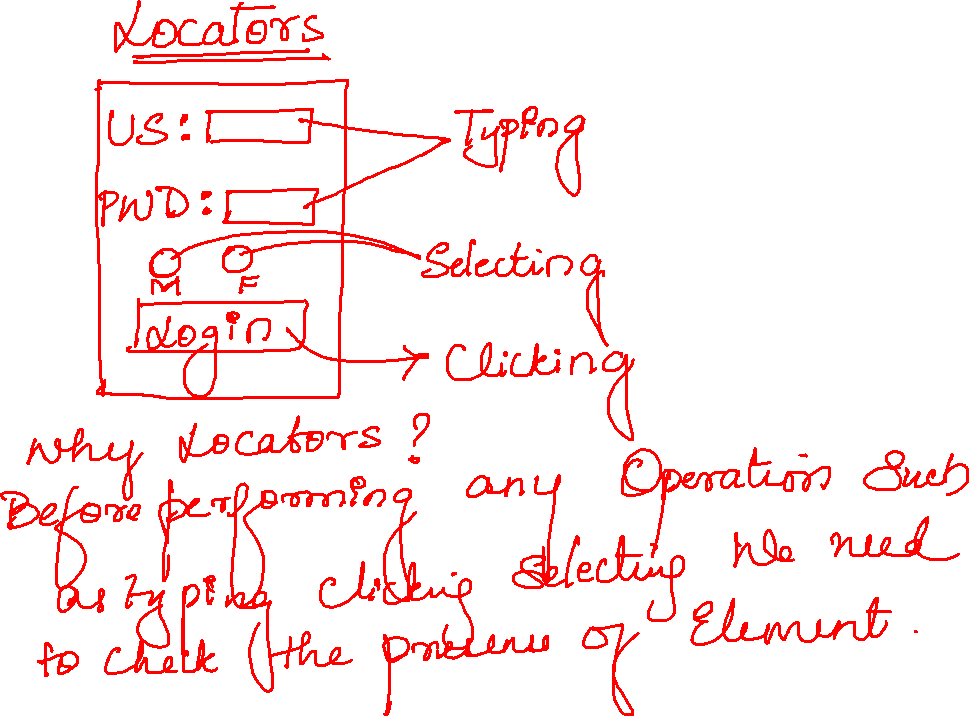 Locators
US: Typing
PWD:
Selecting
M F
Login Clicking
Why Locators?
Before performing any Operation Such
as typing clicking Selecting We need
to check the presence of Element.